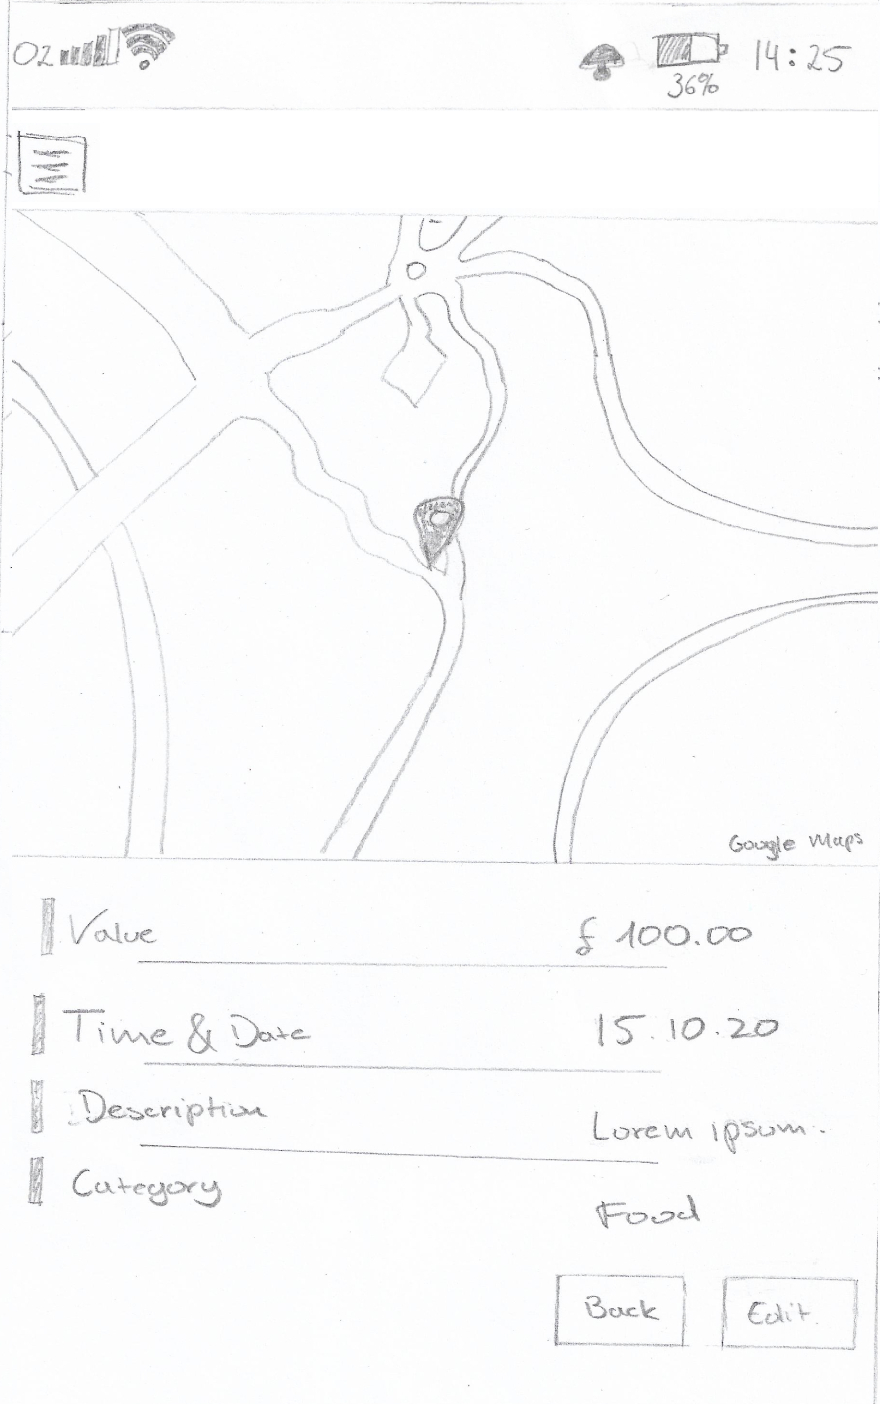 O2 14:25
36%
Google Maps
Value £ 100.00
Time & Date 15.10.20
Description Lorem ipsum.
Category Food
Back Edit